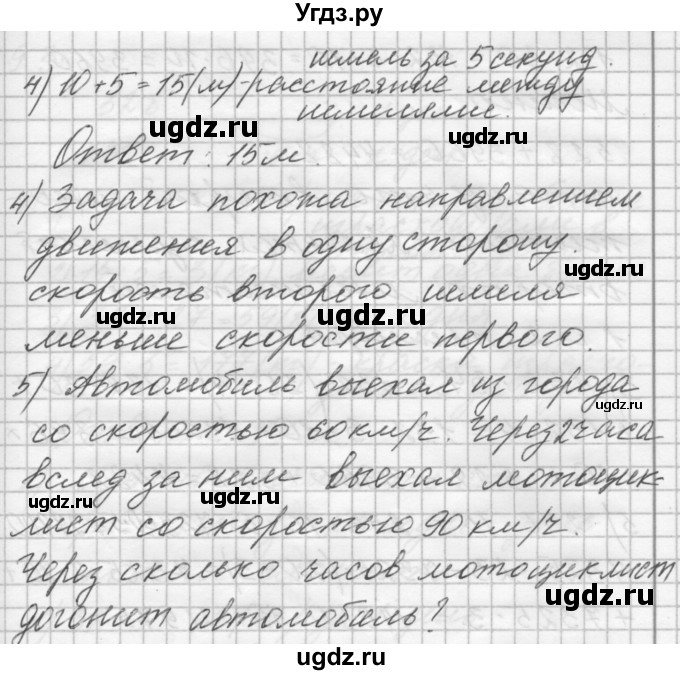 Угдз.ру
шмель за 5 секунд.
4) 10 + 5 = 15 (м) - расстояние между
шмелями.
ugdz.ru ugdz.ru
Ответ: 15 м.
4) Задача похожа направлением
движения в одну сторону.
ugdz.ru
скорость второго шмеля
ugdz.ru ugdz.ru
меньше скорости первого.
5) Автомобиль выехал из города
ugdz.ru
со скоростью 60 км/ч. Через 2 часа
вслед за ним выехал мотоцик-
ugdz.ru ugdz.ru
лист со скоростью 90 км/ч.
Через сколько часов мотоциклист
ugdz.ru
догонит автомобиль?
ugdz.ru